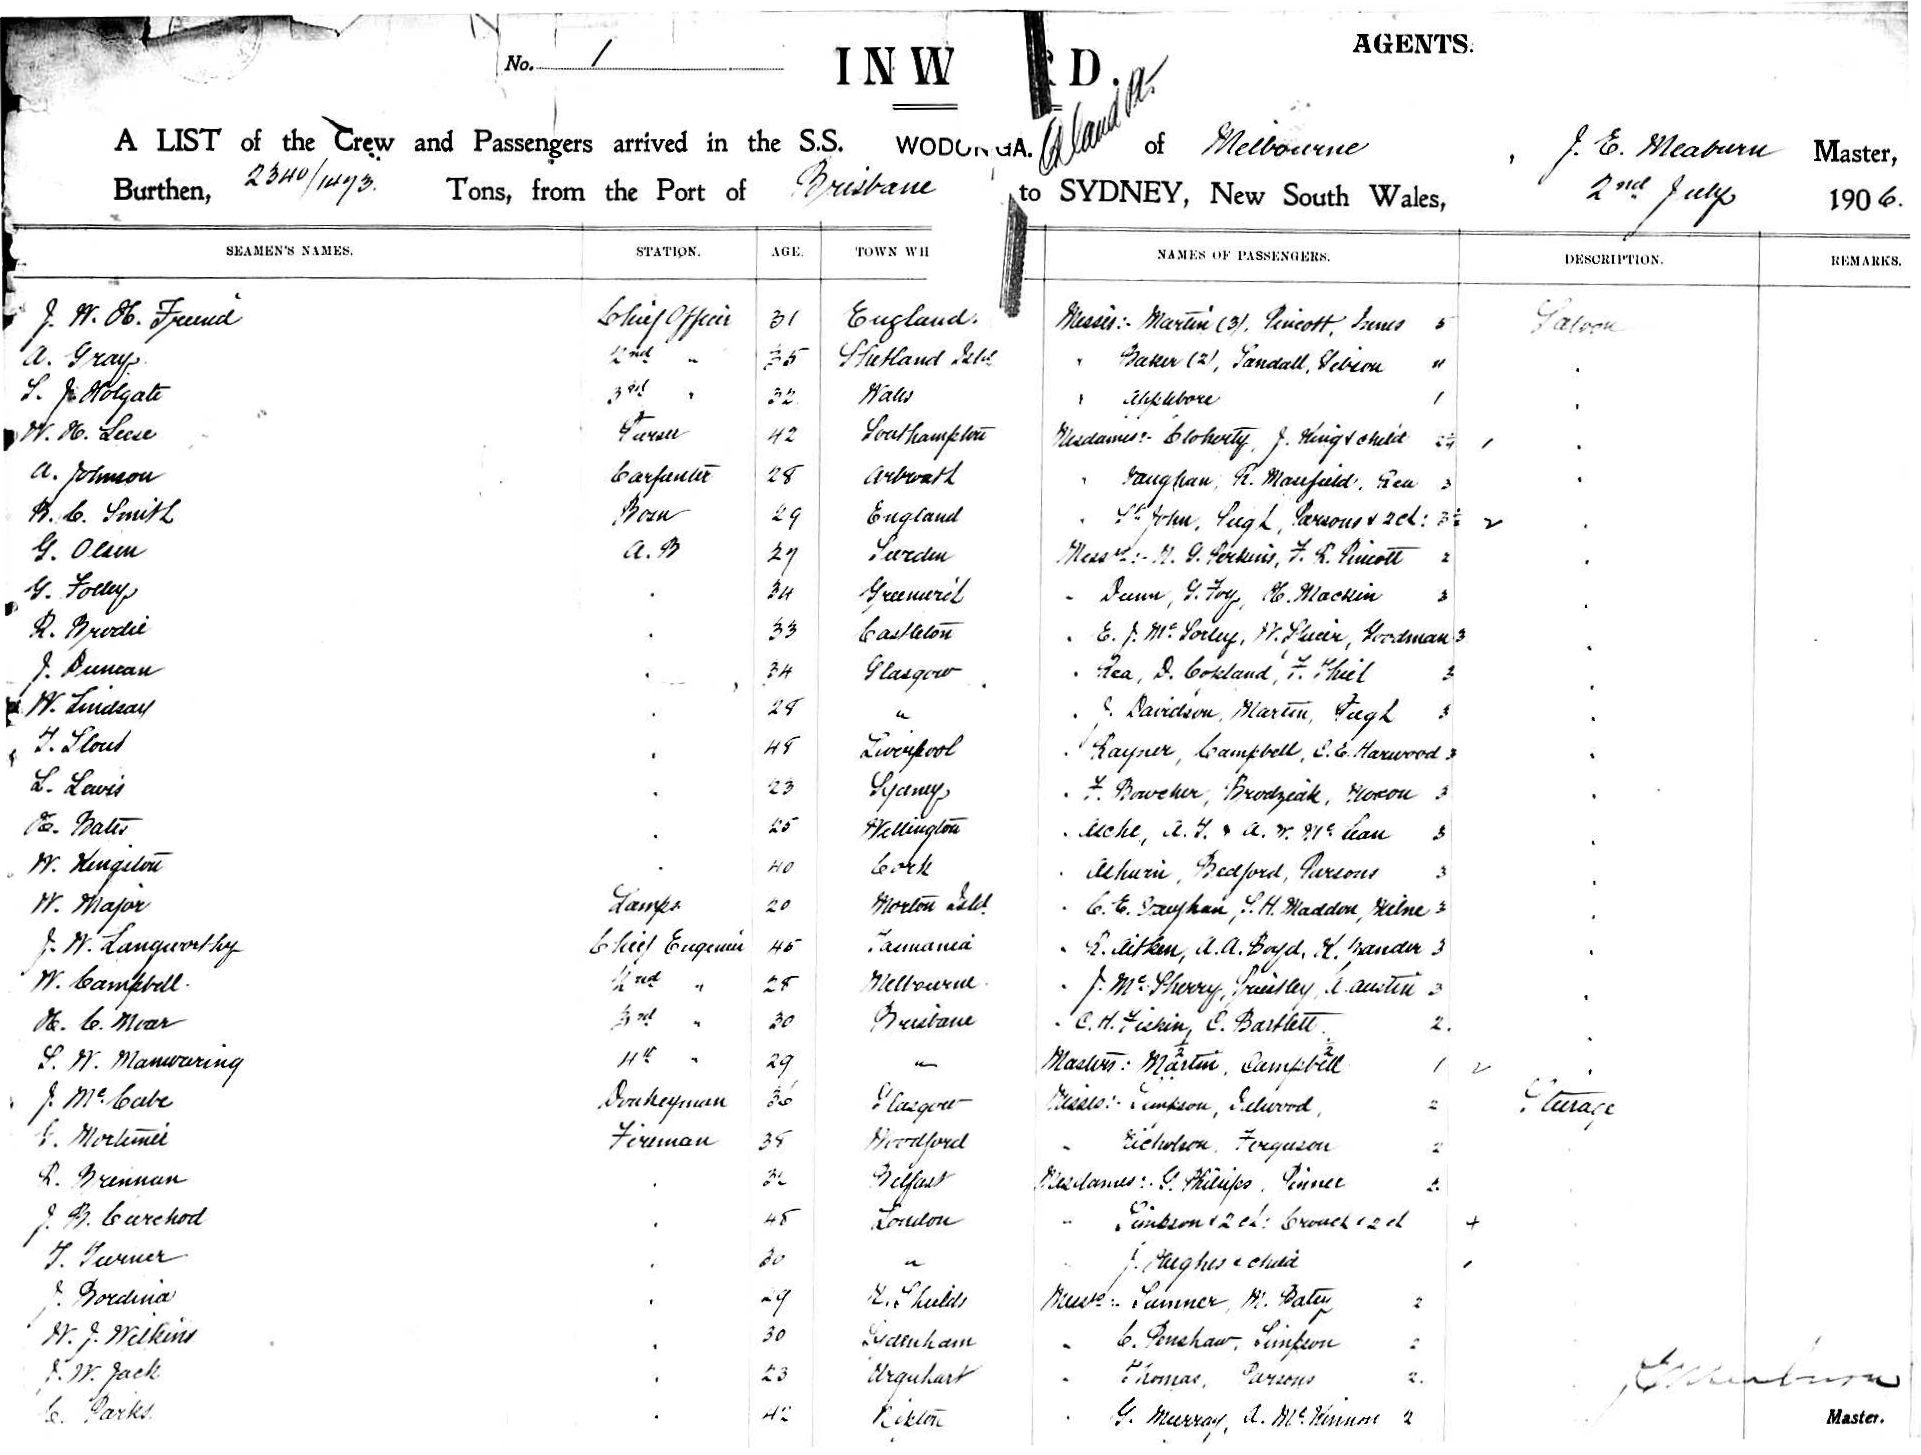 AGENTS.
No. 1
INW RD.
A LIST of the Crew and Passengers arrived in the S.S. WODONGA. of Melbourne, J. E. Meaburn Master,
Burthen, 2340/1493. Tons, from the Port of Brisbane to SYDNEY, New South Wales, 2nd July 1906.
SEAMEN'S NAMES. STATION. AGE. TOWN WH NAMES OF PASSENGERS. DESCRIPTION. REMARKS.
J. W. H. Freund Chief Officer 31 England. Misses:- Martin (3), Pincott, Innes 5 Saloon
A. Gray 2nd " 35 Shetland Isld. " Baker (2), Sandall, 4
S. J. Holgate 3rd " 32 Wales " Applebore 1
W. H. Leese Purser 42 Southampton Mesdames:- Cloherty, J. King & child
A. Johnson Carpenter 28 Arbroath " Vaughan, R. Manfield, Rea 3
B. C. Smith Bosn 29 England " St. John, Pugh, Parsons & 2 ch: 3
G. Olsen A.B 29 Sweden Messrs:- G. Perkins, F. R. Pincott 2
G. Folley " 34 Greenwich " Dunn, G. Foy, H. Mackin 3
R. Brodie " 33 Castleton " E. J. McSorley, W. Goodman 3
J. Duncan " 34 Glasgow " Rea, D. Copland, F. Thiel 3
W. Lindsay " 28 " " J. Davidson, Martin, Pugh 3
T. Stout " 48 Liverpool " Rayner, Campbell, C. E. Harwood 3
L. Lewis " 23 Sydney " F. Bowcher, Brodziak, Moxon 3
H. Bates " 25 Wellington " Asche, A. T. & A. W. McLean 3
W. Kingston " 40 Cork " Bedford, Parsons 3
W. Major Lamps 20 Morton Isld. " C. E. Vaughan, S. H. Maddon, Milne 3
J. W. Langworthy Chief Engineer 45 Tasmania " R. Aitken, A. A. Boyd, K. Zander 3
W. Campbell 2nd " 28 Melbourne " J. McSherry, Priestley, A. Austin 3
H. C. Moar 3rd " 30 Brisbane " C. H. Fiskin, E. Bartlett 2.
S. W. Manwaring 4th " 29 " Masters: Martin, Campbell 1
J. McCabe Donkeyman 36 Glasgow Misses:- Simpson, Selwood, 2 Steerage
G. Mortimer Fireman 38 Woodford " Nicholson, Ferguson 2
R. Brennan " 32 Belfast Mesdames:- G. Phillips, Pinner 2
J. B. Curchod " 48 London " Simpson & 2 ch: Crouch & 2 ch 4
T. Turner " 30 " " J. Hughes & child 1
J. Bordina " 29 N. Shields Messrs:- Sumner, M. Batey 2
W. J. Wilkins " 30 Sydenham " C. Penshaw, Simpson 2
J. W. Jack " 23 Urquhart " Thomas, Parsons 2.
C. Parks. " 42 " G. Murray, A. McKinnon 2
J E Meaburn
Master.